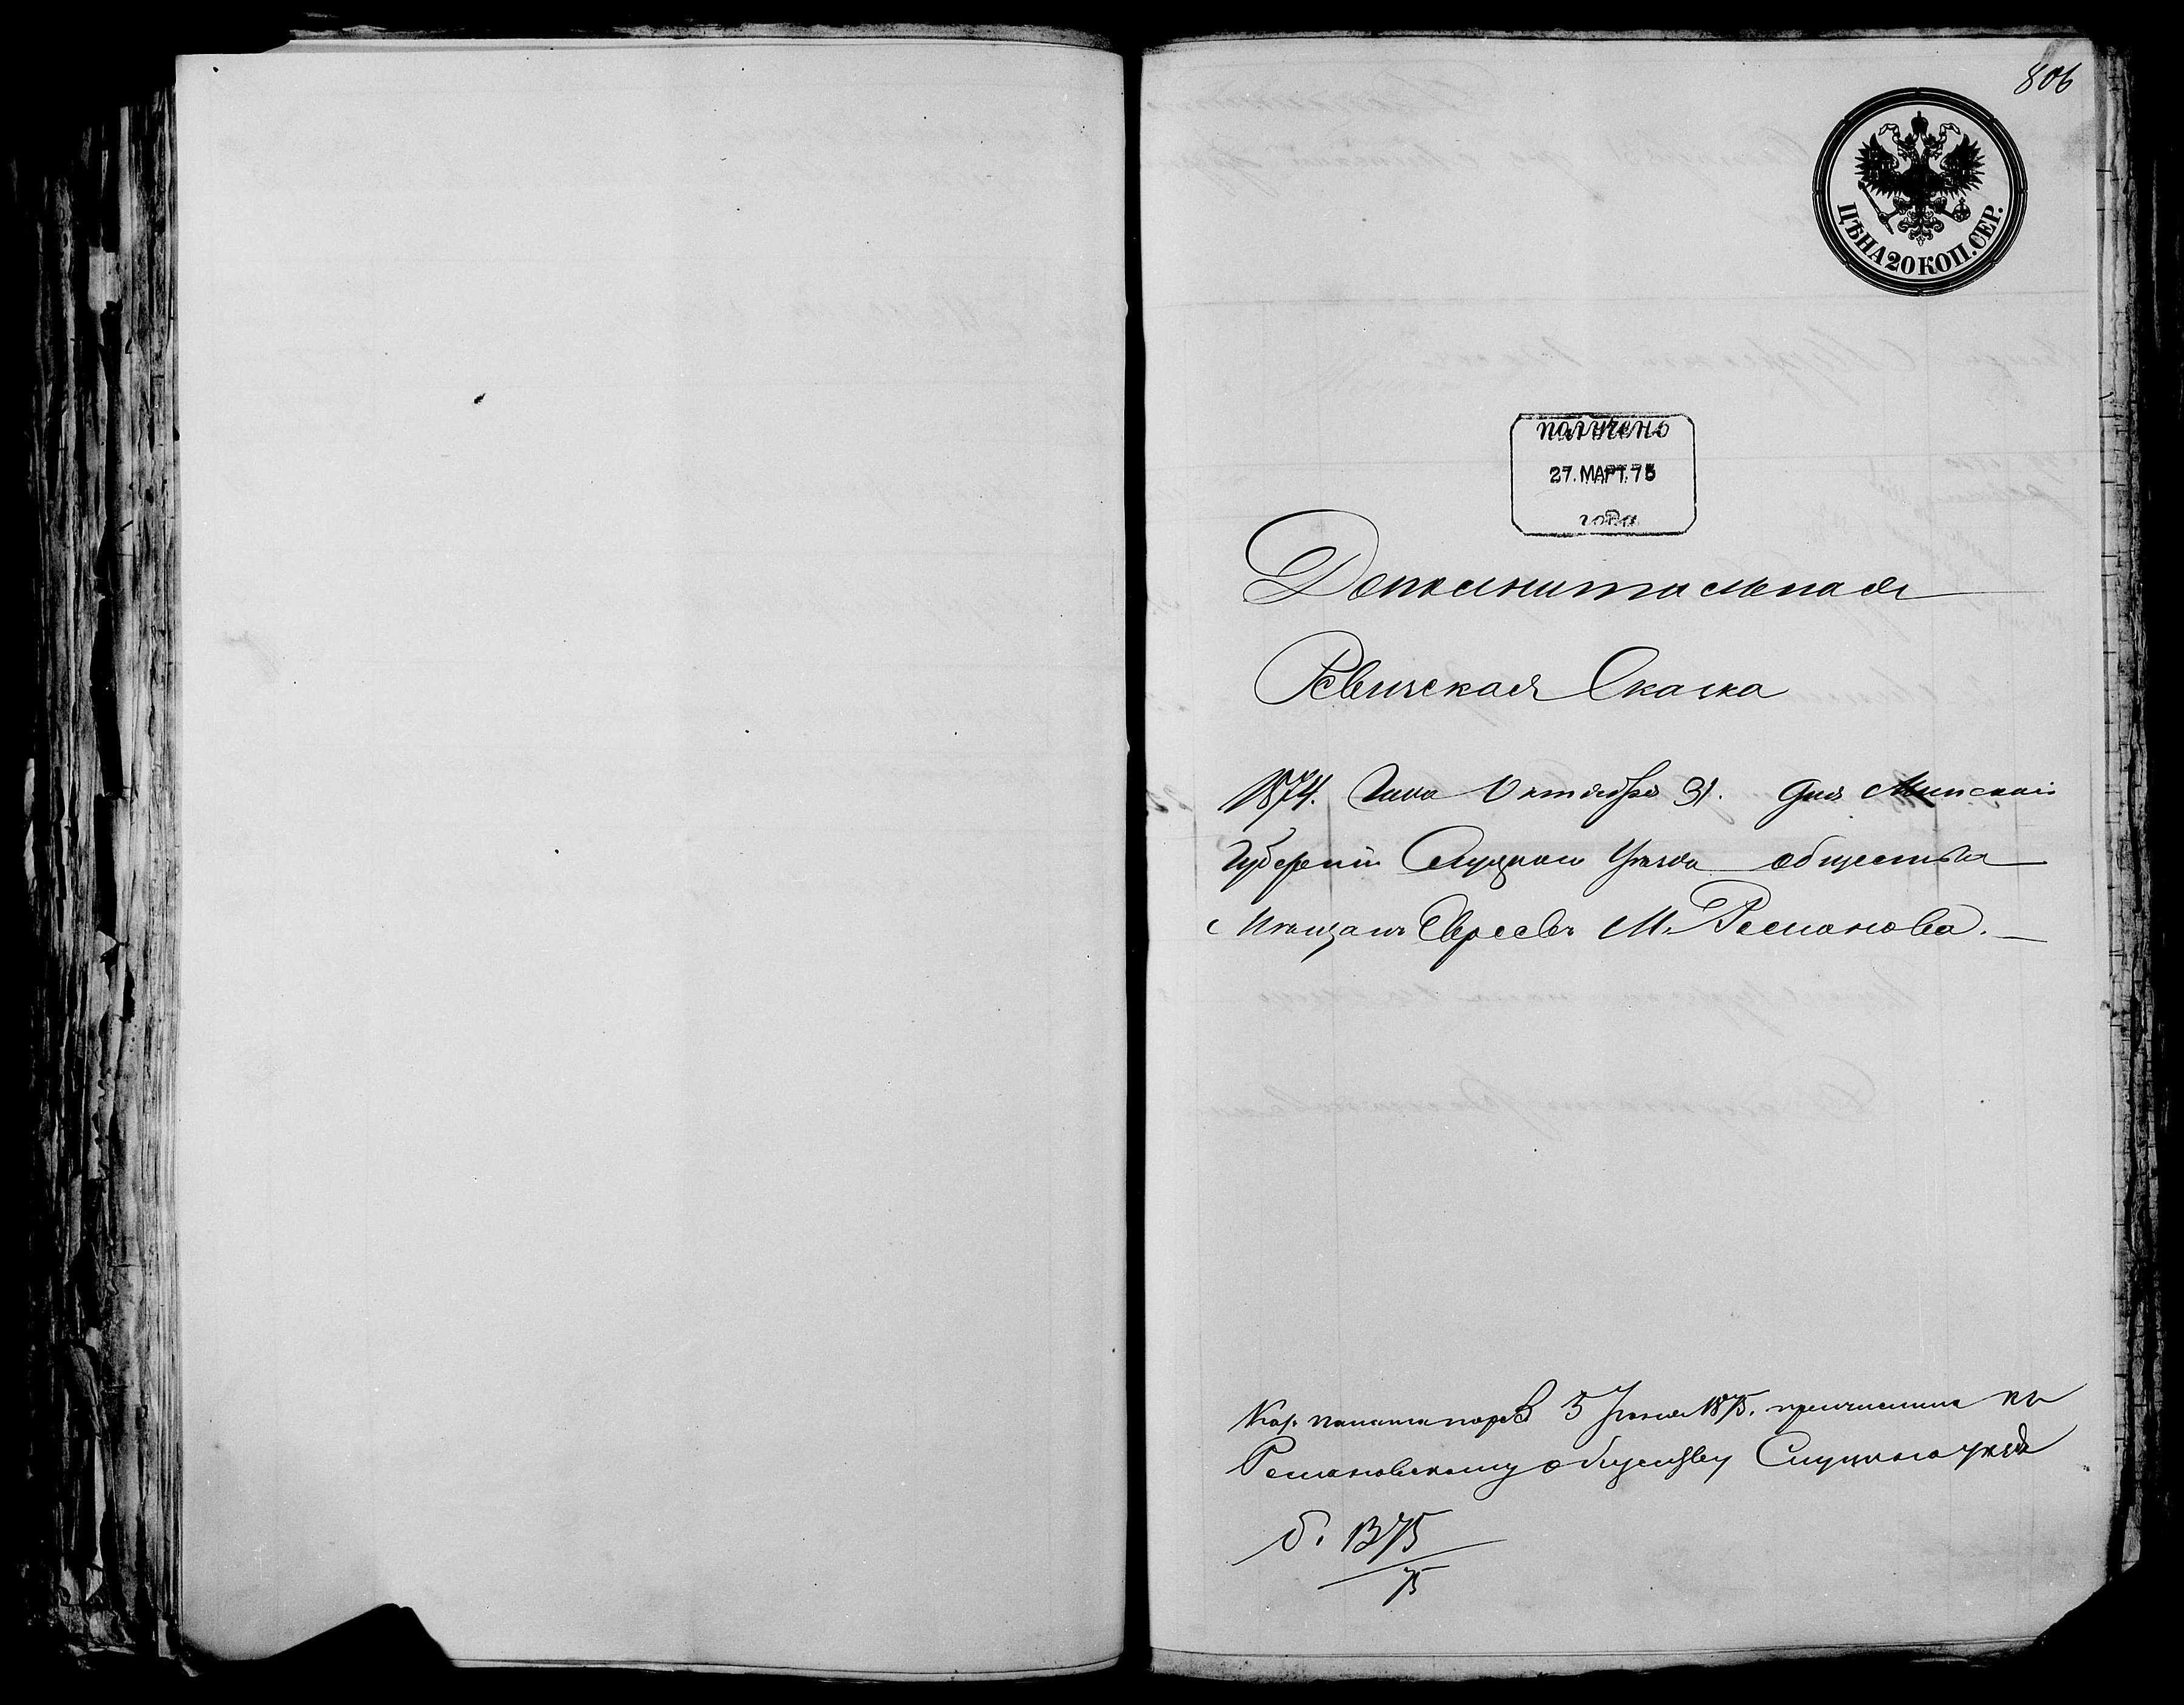 806
ЦѢНА 20 КОП. СЕР.
получено
27. МАРТ. 75
года
Дополнительная
Ревизская Сказка
1874. Года Октября 31. дня Минской
Губерніи Слуцкаго Уѣзда общества
Мѣщанъ Евреевъ М. Романова.
Каз. палата 5 Іюня 1875. причислила къ
Романовскому обществу Слуцкаго уѣзда
б. 1375
75